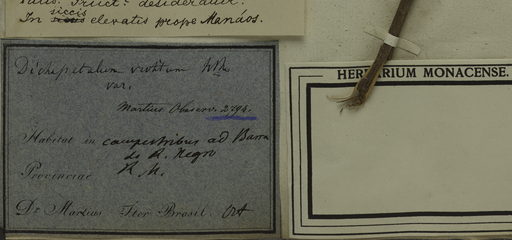 desideratur.
siccis
In elevatis prope Manáos.
Dichapetalum
var.
Martius Observ. 2794.
Habitat in campestribus ad Barra
do R. Negro
Provinciae R. N.
Dr. Martius Iter Brasil. Oct
HERBARIUM MONACENSE.